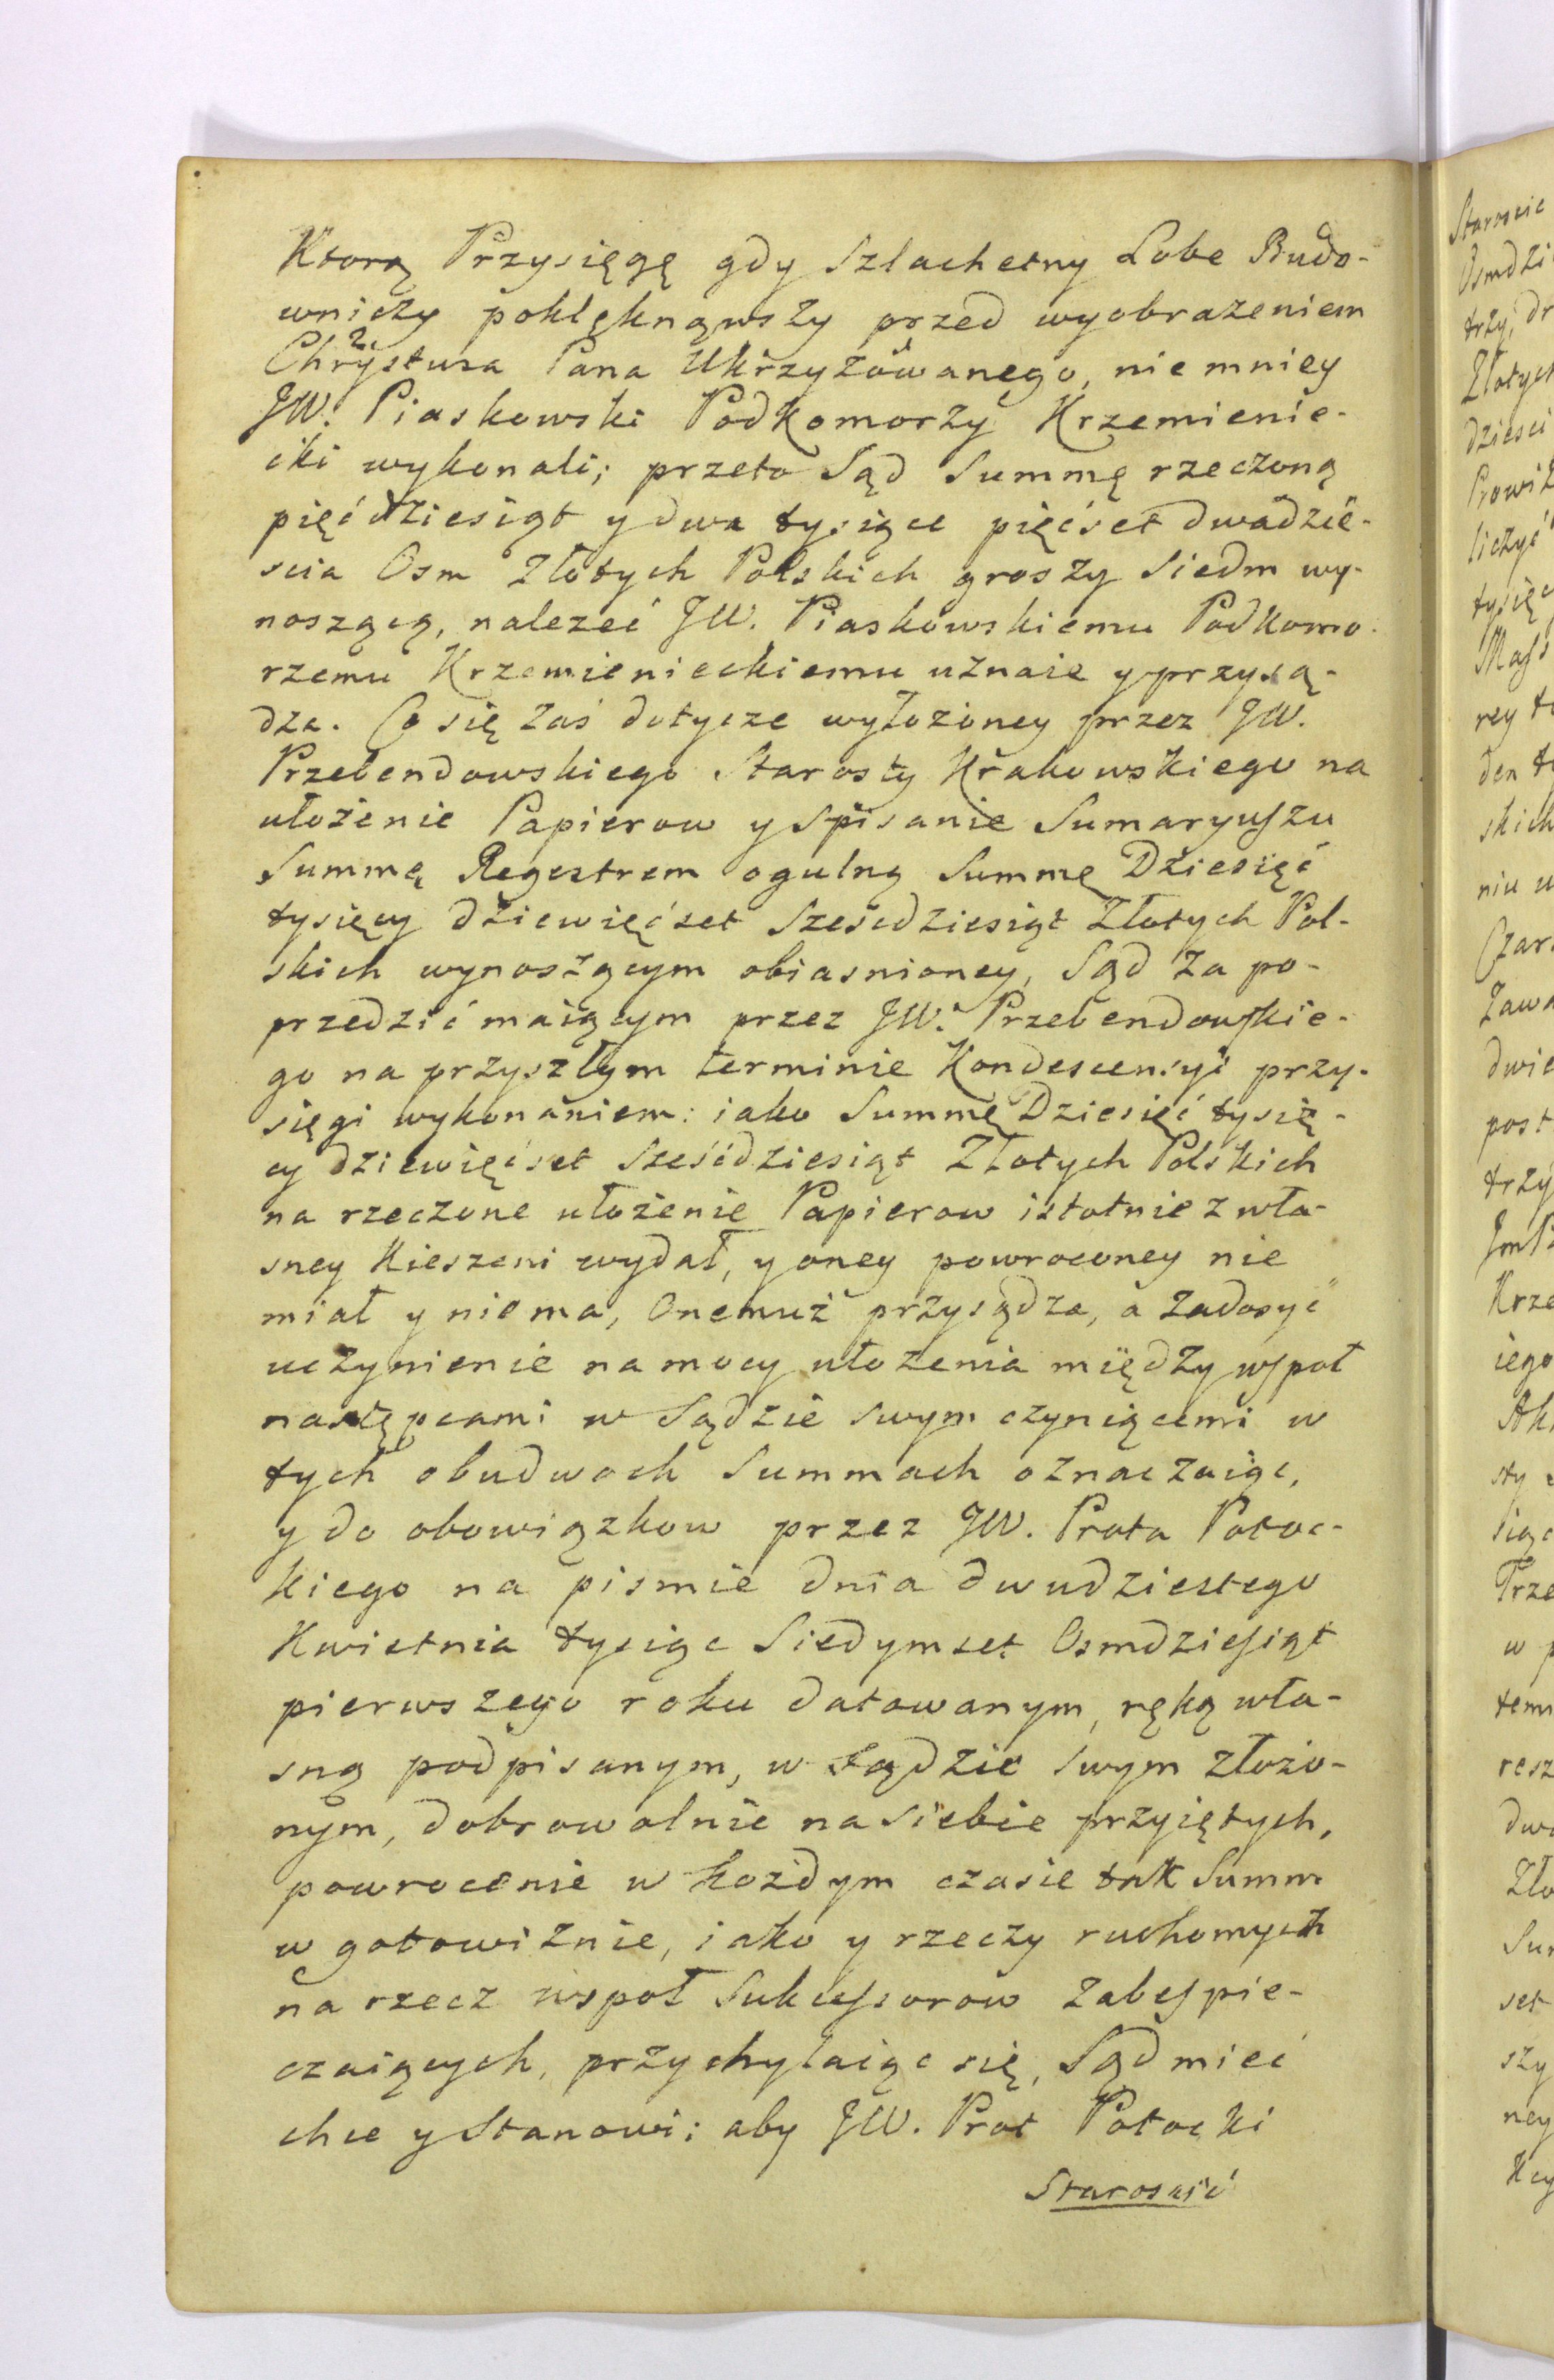 Ktorą Przysięgę gdy Szlachetny Lobe Budo-
wniczy poklęknąwszy przed wyobrazeniem
Chrzystusa Pana Ukrzyżowanego, nie mniey
JW. Piaskowski Podkomorzy Krzemienie-
cki wykonali; przeto Sąd Summę rzeczoną
pięćdziesiąt y dwa tysiące pięćset dwadzie-
scia Osm Złotych Polskich groszy Siedm wy-
noszącą, nalezeć JW. Piaskowskiemu Podkomo-
rzemu Krzemienieckiemu uznaie y przysą-
dza. Co się zaś dotycze wyłożoney przez JW.
Przebendowskiego Starosty Krakowskiego na
ułożenie Papierow y Spisanie Sumaryuszu
Summą Regestrem ogulną Summę Dziesięć
tysięcy dziewięćset Sześcdziesiąt Złotych Pol-
skich wynoszącym obiasnioney, Sąd za po-
przedzić maiącym przez JW. Przebendowskie-
go na przyszłym terminie Kondescensyi przy-
sięgi wykonaniem: iako Summę Dziesięć tysię-
cy dziewięćset Sześćdziesiąt Złotych Polskich
na rzeczone ułożenie Papierow istotnie z wła-
sney Kieszeni wydał, y oney powroconey nie
miał y niema, Onemuż przysądza, a zadosyć
uczynienie na mocy ułozenia między wspoł
następcami w Sądzie swym czyniącemi w
tych obudwoch Summach oznaczaiąc,
y do obowiązkow przez JW. Prota Potoc-
kiego na pismie dnia dwudziestego
Kwietnia tysiąc Siedymset Osmdziesiąt
pierwszego roku datowanym, ręką wła-
sną podpisanym, w Sądzie swym złożo-
nym, dobrowolnie na siebie przyiętych,
powrocenie w każdym czasie tak Summ
w gotowiznie, iako y rzeczy ruchomych
na rzecz wspoł Sukcessorow zabespie-
czaiących, przychylaiąc się, Sąd mieć
chce y Stanowi; aby JW. Prot Potocki
Starościć
Staroscic
Osmdzi
trzy, dr
Złotych
dziesci
Prowiz
liczyć
tysięc
Mass
rey t
den t
skich
niu u
Czar
Zawa
dwie
post
trzy
Krze
iego
sty
siąc
Prze
w p
tem
resz
dwa
Zło
Su
set
szy
ney